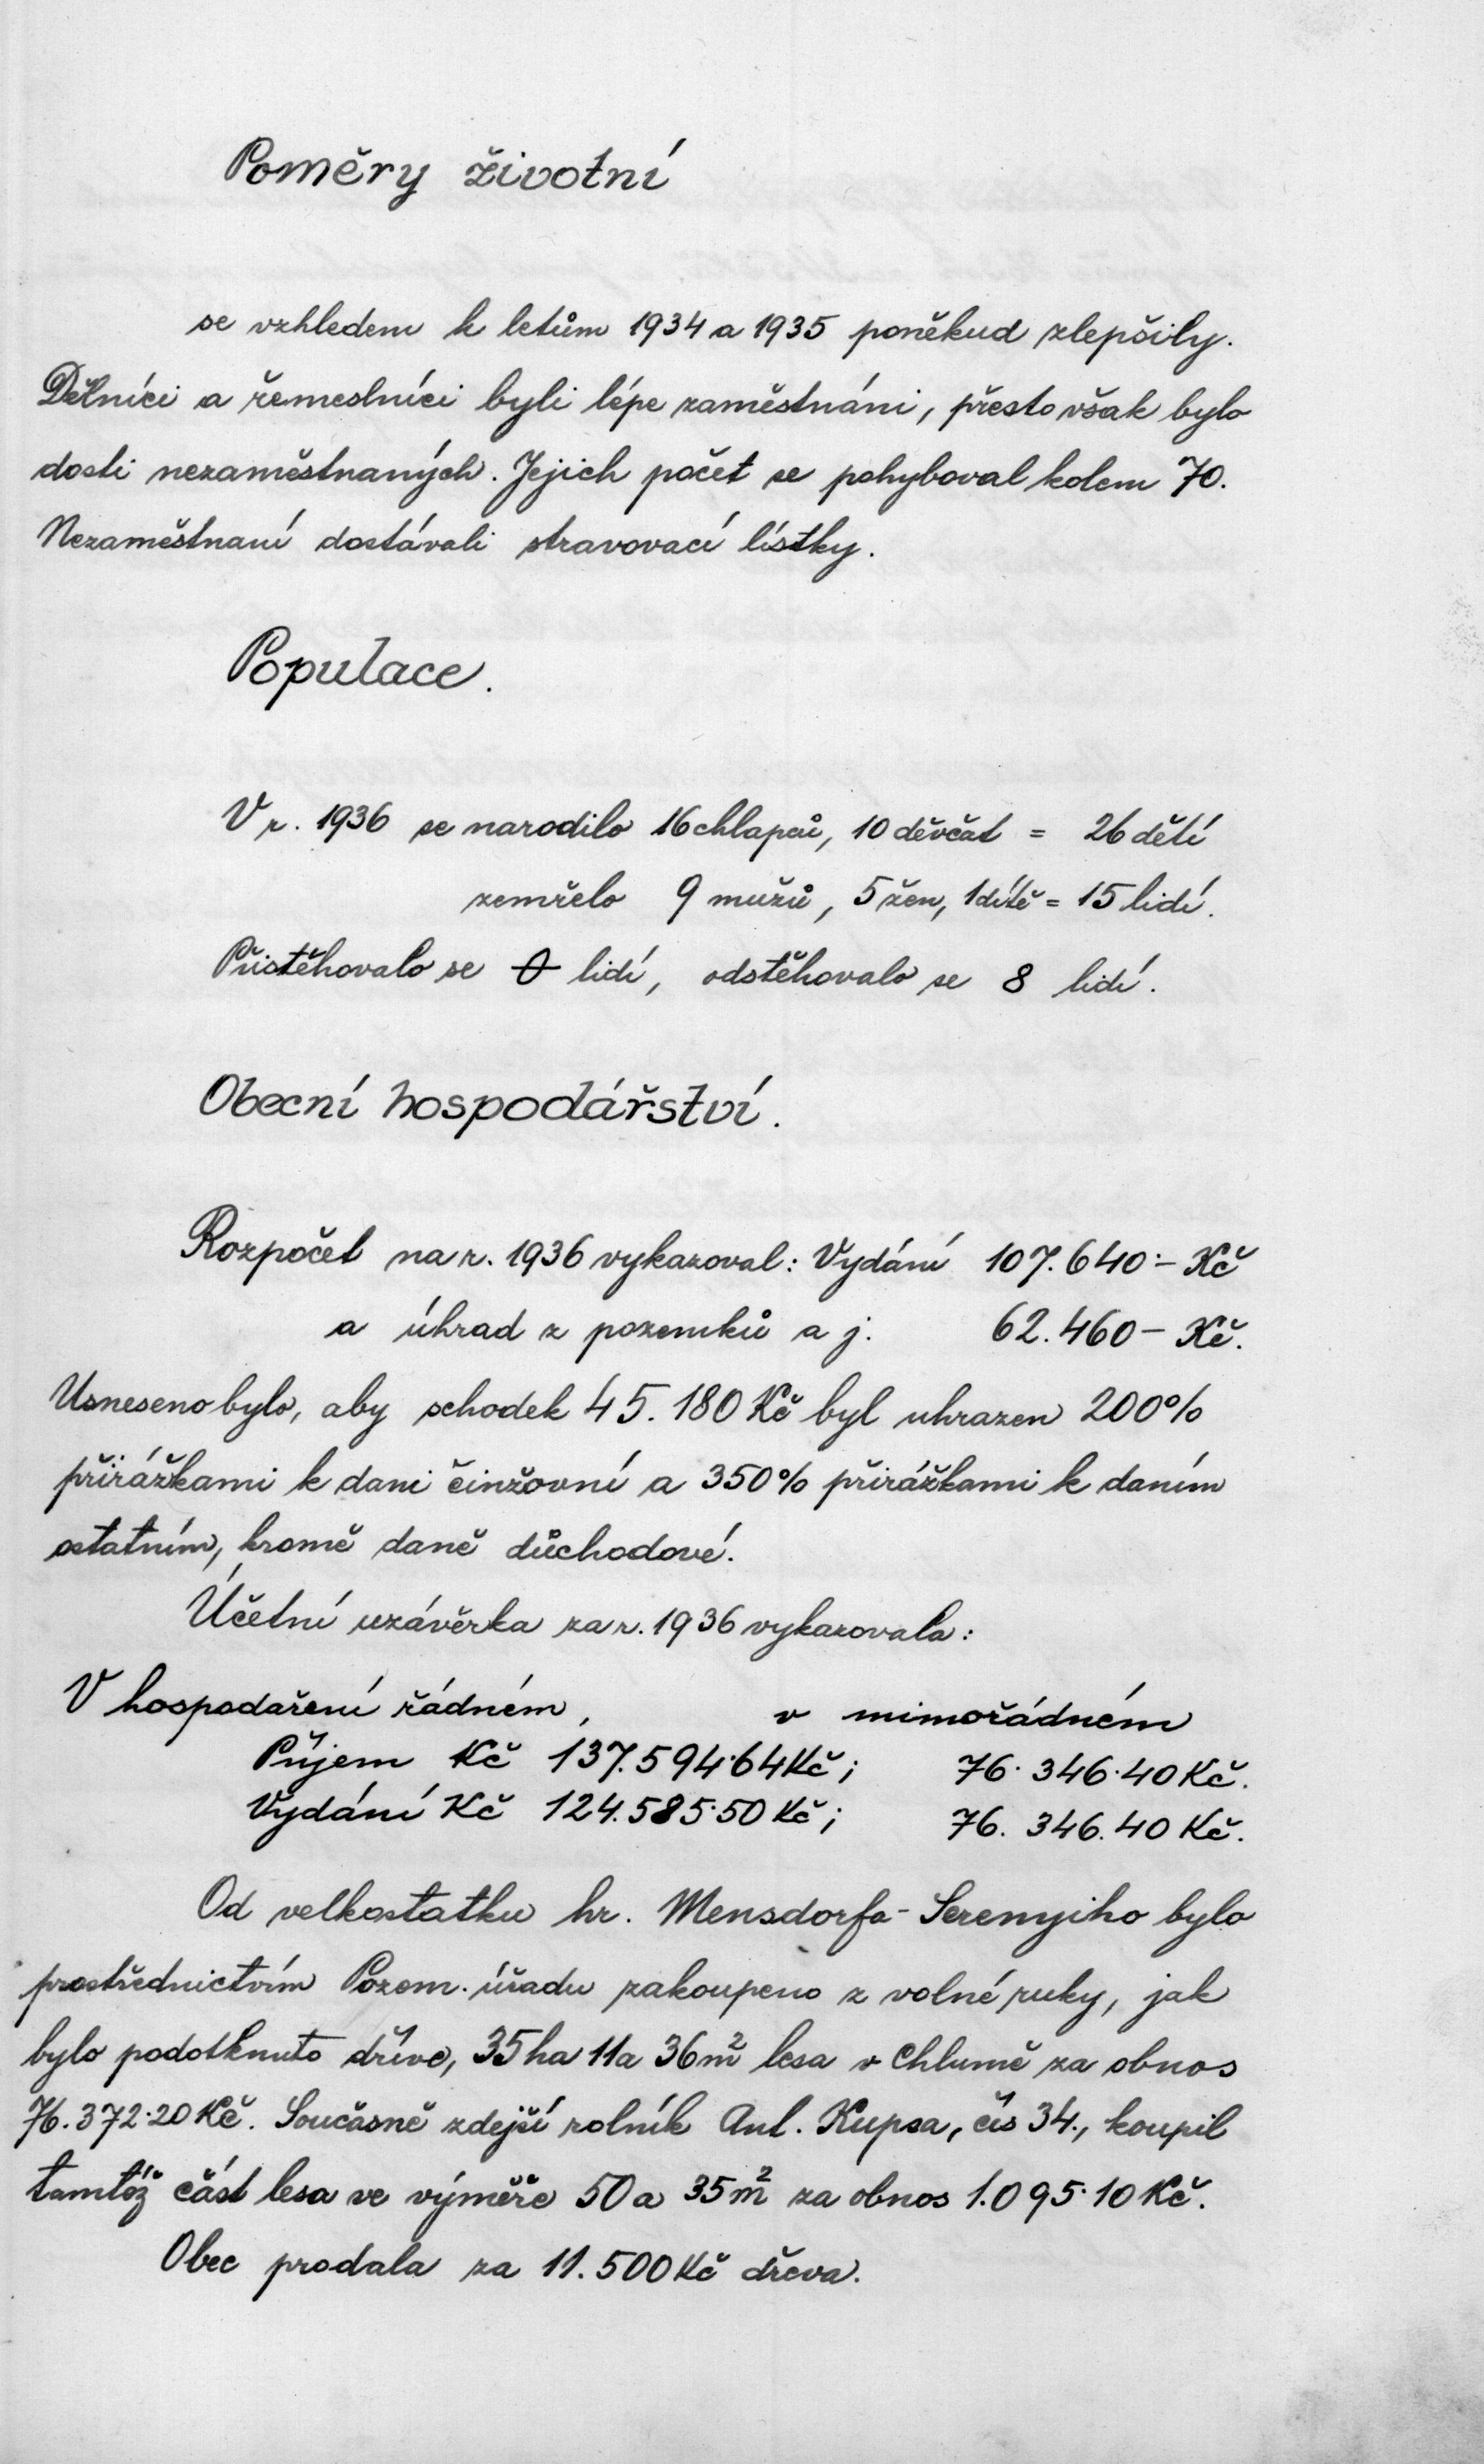 Poměry životní
se vzhledem k letům 1934 a 1935 poněkud zlepšily.
Dělníci a řemeslníci byli lépe zaměstnáni, přesto však bylo
dosti nezaměstnaných. Jejich počet se pohyboval kolem 70.
Nezaměstnaní dostávali stravovací lístky.
Populace.
V r. 1936 se narodilo 16 chlapců, 10 děvčat = 26 dětí
zemřelo 9 mužů, 5 žen, 1 dítě = 15 lidí.
Přistěhovalo se 0 lidí, odstěhovalo se 8 lidí.
Obecní hospodářství.
Rozpočet na r. 1936 vykazoval: Vydání 107.640·– Kč
a úhrad z pozemků a j. 62.460– Kč.
Usneseno bylo, aby schodek 45.180 Kč byl uhrazen 200%
přirážkami k dani činžovní a 350% přirážkami k daním
ostatním, kromě daně důchodové.
Účetní uzávěrka za r. 1936 vykazovala:
V hospodaření řádném, v mimořádném
Příjem Kč 137.594·64 Kč; 76.346·40 Kč.
Vydání Kč 124.585·50 Kč; 76.346.40 Kč.
Od velkostatku hr. Mensdorfa-Serenyiho bylo
prostřednictvím Pozem. úřadu zakoupeno z volné ruky, jak
bylo podotknuto dříve, 35 ha 11 a 36 m² lesa v Chlumě za obnos
76.372·20 Kč. Současně zdejší rolník Ant. Kupsa, čís 34., koupil
tamtéž část lesa ve výměře 50 a 35 m² za obnos 1.095·10 Kč.
Obec prodala za 11.500 Kč dřeva.